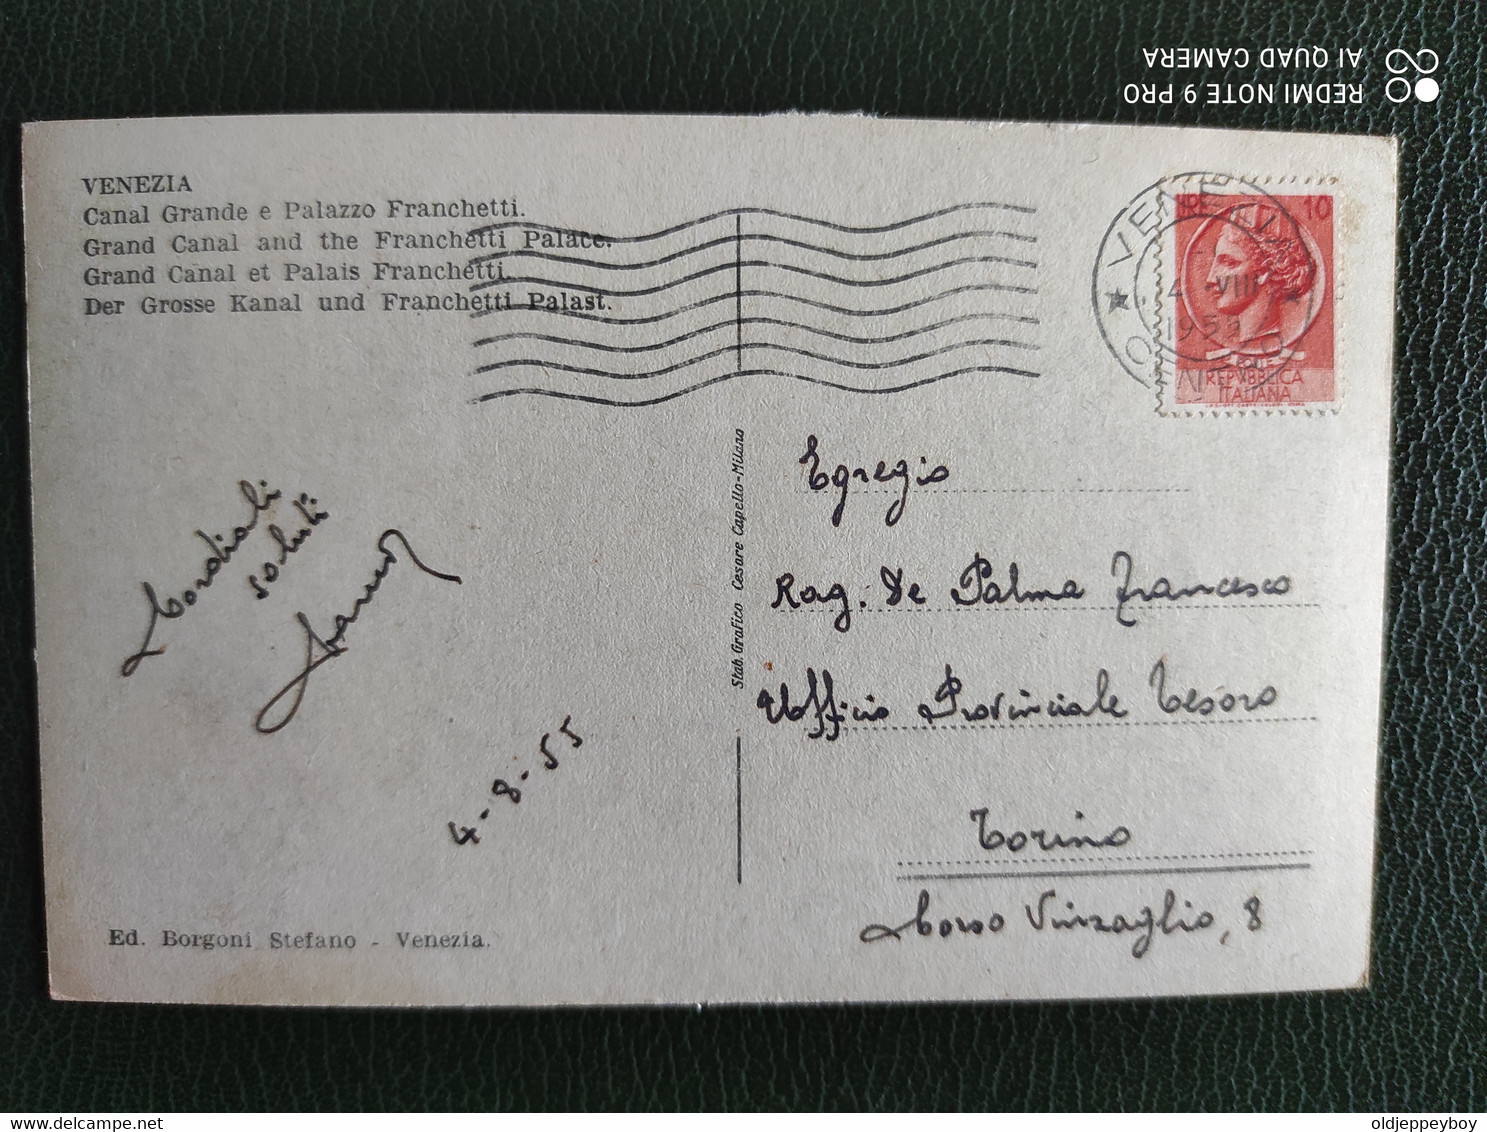 REDMI NOTE 9 PRO
AI QUAD CAMERA
VENEZIA
Canal Grande e Palazzo Franchetti.
Grand Canal and the Franchetti Palace.
Grand Canal et Palais Franchetti.
Der Grosse Kanal und Franchetti Palast.
LIRE 10
REPVBBLICA
ITALIANA
VENEZIA
4 VIII
1955
Cordiali
saluti
4-8-55
Stab. Grafico Cesare Capello-Milano
Egregio
Rag. De Palma Francesco
Ufficio Provinciale Tesoro
Torino
Corso Vinzaglio, 8
Ed. Borgoni Stefano - Venezia.
oldjeppeyboy